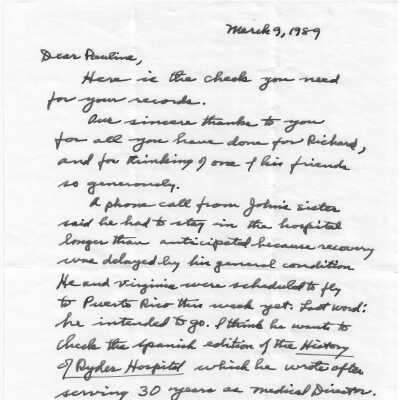 March 9, 1989
Dear Pauline,
Here is the check you need
for your records.
Our sincere thanks to you
for all you have done for Richard,
and for thinking of one of his friends
so generously.
A phone call from John's sister
said he had to stay in the hospital
longer than anticipated because recovery
was delayed by his general condition
He and Virginia were scheduled to fly
to Puerto Rico this week yet. Last word:
he intended to go. I think he wants to
check the Spanish edition of the History
of Ryder Hospital which he wrote after
serving 30 years as Medical Director.